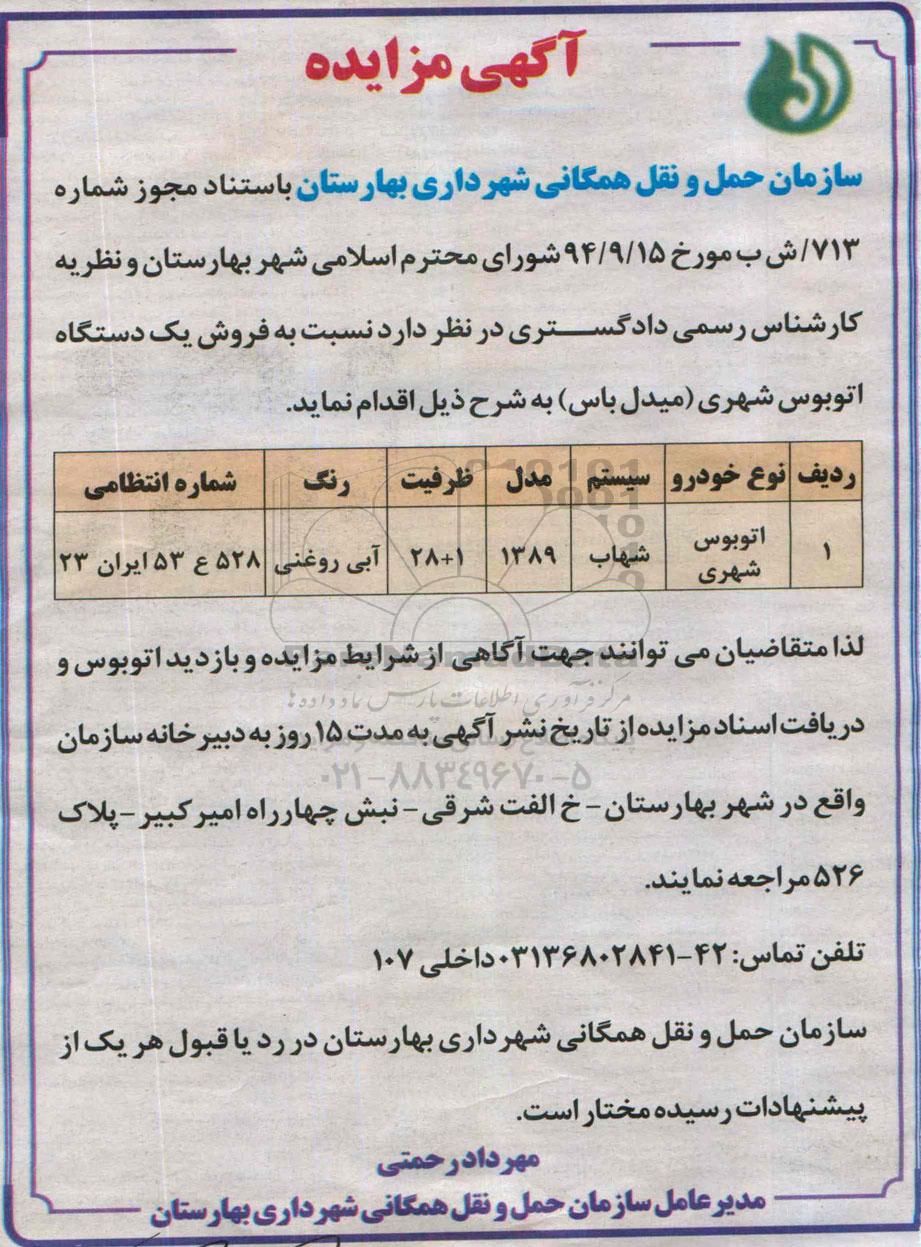 آگهی مزایده
سازمان حمل و نقل همگانی شهرداری بهارستان باستناد مجوز شماره
۷۱۳/ش ب مورخ ۹۴/۹/۱۵ شورای محترم اسلامی شهر بهارستان و نظریه
کارشناس رسمی دادگستری در نظر دارد نسبت به فروش یک دستگاه
اتوبوس شهری (میدل باس) به شرح ذیل اقدام نماید.
ردیف نوع خودرو سیستم مدل ظرفیت رنگ شماره انتظامی
۱ اتوبوس شهری شهاب ۱۳۸۹ ۲۸+۱ آبی روغنی ۵۲۸ ع ۵۳ ایران ۲۳
لذا متقاضیان می توانند جهت آگاهی از شرایط مزایده و بازدید اتوبوس و
مرکز فرآوری اطلاعات پارس نماد داده ها
دریافت اسناد مزایده از تاریخ نشر آگهی به مدت ۱۵ روز به دبیرخانه سازمان
۰۲۱-۸۸۳۴۹۶۷۰-۵
واقع در شهر بهارستان - خ الفت شرقی - نبش چهارراه امیرکبیر - پلاک
۵۲۶ مراجعه نمایند.
تلفن تماس: ۴۲-۰۳۱۳۶۸۰۲۸۴۱ داخلی ۱۰۷
سازمان حمل و نقل همگانی شهرداری بهارستان در رد یا قبول هر یک از
پیشنهادات رسیده مختار است.
مهرداد رحمتی
مدیرعامل سازمان حمل و نقل همگانی شهرداری بهارستان